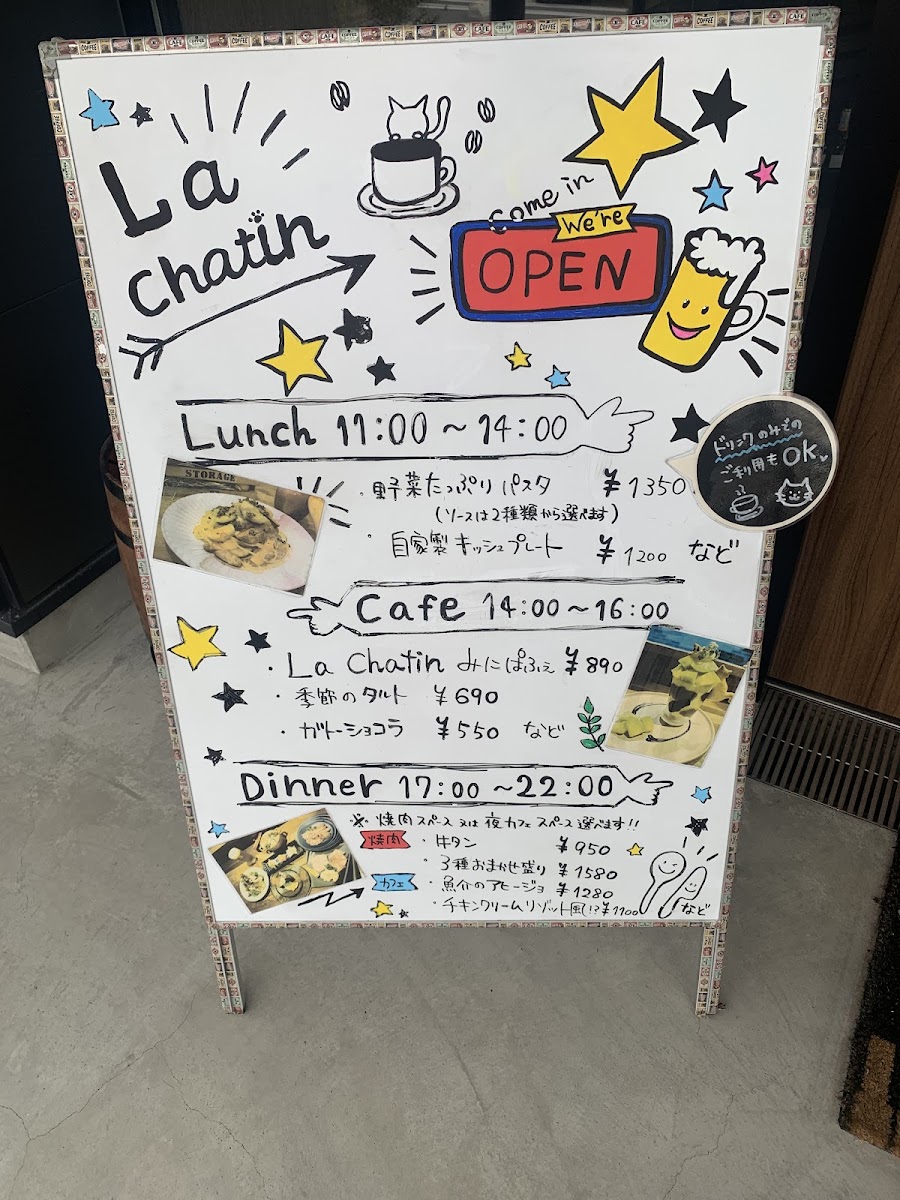 La
chatin
Come in
We're
OPEN
Lunch 11:00 ～ 14:00
ドリンクのみでの
ご利用も OK
STORAGE
・野菜たっぷりパスタ ¥1350
(ソースは2種類から選べます)
・自家製キッシュプレート ¥1200 など
Cafe 14:00～16:00
・La Chatin みにぱふぇ ¥890
・季節のタルト ¥690
・ガトーショコラ ¥550 など
Dinner 17:00 ～22:00
※ 焼肉スペース 又は 夜カフェスペース選べます!!
焼肉 ・牛タン ¥950
・3種おまかせ盛り ¥1580
カフェ ・魚介のアヒージョ ¥1280
・チキンクリームリゾット風!? ¥1100 など